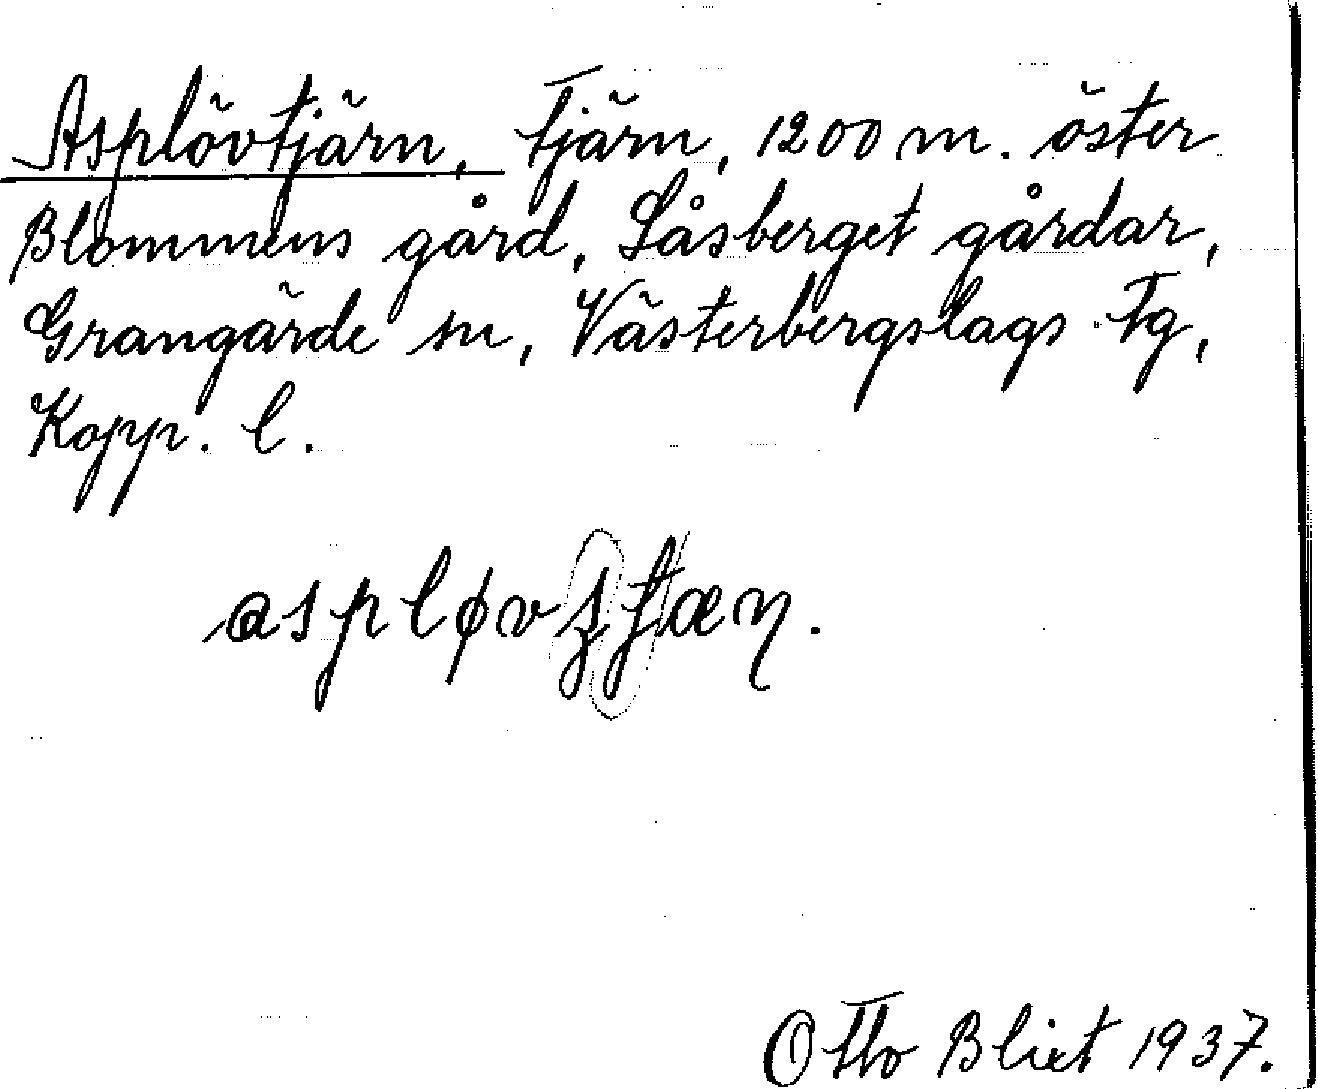 Asplövtjärn, tjärn, 1200 m. öster
Blommens gård, Låsberget gårdar,
Grangärde sn, Västerbergslags tg,
Kopp. l.
Otto Blixt 1937.